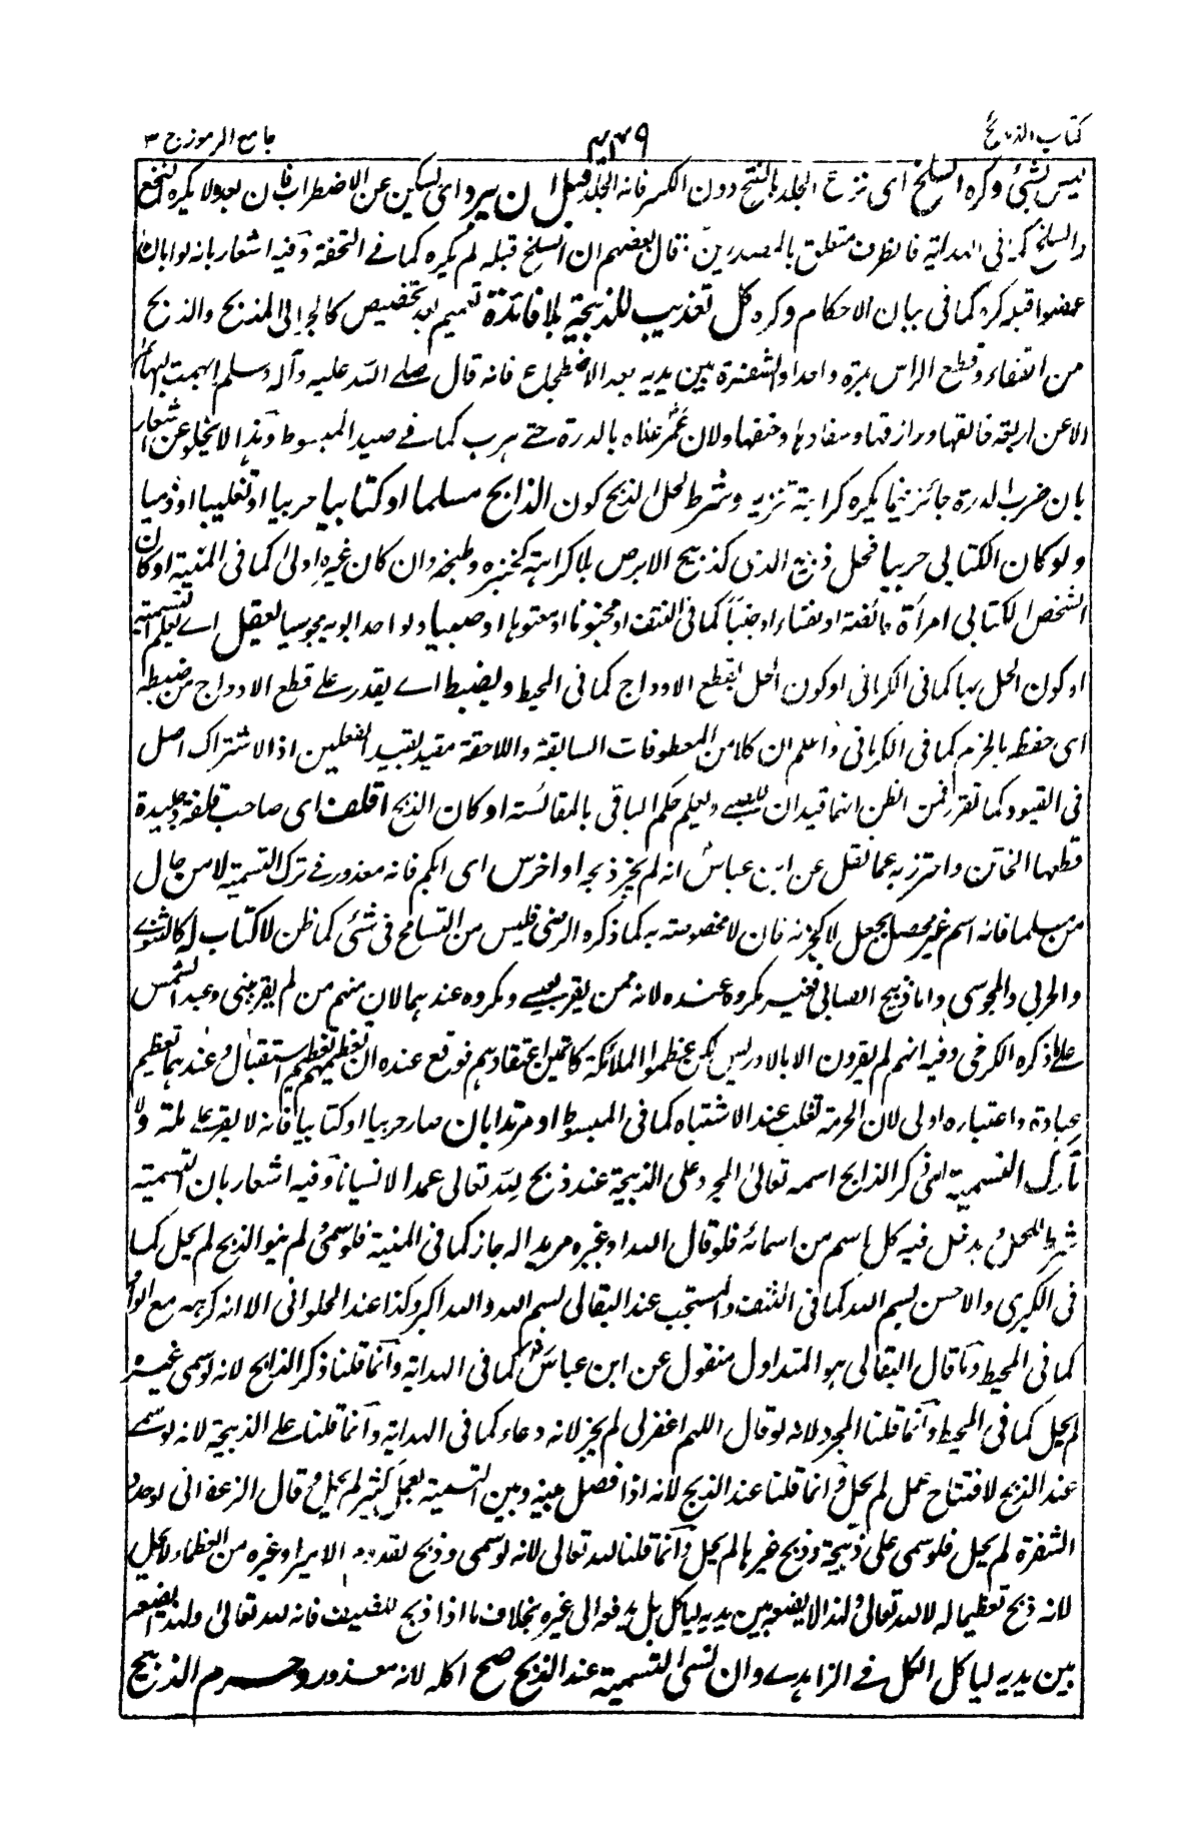 كتاب الذبائح
جامع الرموز ج ٣
ليس بشئ وكره السلخ اى نزع الجلد بالفتح دون الكسر فانه الجلد قبل ان يبرد اى يسكن عن الاضطراب فان بعده لا يكره النخع
والسلخ كما فى الهداية فالظرف متعلق بالمصدرين قال بعضهم ان السلخ قبله لم يكره كما فے التحفة وفيه اشعار بانه لو ابان
عضوا قبله كره كما فى بيان الاحكام وكره كل تعذيب للذبيحة بلا فائدة تعميم بعد تخصيص كالجر الى المذبح والذبح
من القفاء وقطع الراس بمرة واحدا والشفرة بين يديه بعد الاضطجاع فانه قال صلے الله عليه وآله وسلم ابهمت البهائم
الا عن اربعة خالقها ورازقها وسفادها وحتفها ولان عمر علاه بالدرة حتے هرب كما فے صيد المبسوط وهذا لا يخلو عن اشعار
بان ضرب الدرة جائز فيما يكره كراهة تنزيه وشرط لحل الذبح كون الذابح مسلما او كتابيا حربيا او تغلبيا او ذميا
ولو كان الكتابى حربيا فحل ذبيح الذمى كذبيح الابرص بلا كراهة كخبزه وطبخه وان كان غيره اولى كما فى المنية او كان
الشخص الكتابى امرأة حائضة او نفساء او جنبا كما فى النتف او مجنونا او معتوها او صبيا ولو احد ابويه مجوسيا يعقل اے يعلم التسمية
او كون الحل بها كما فى الكرمانى او كون الحل بقطع الاوداج كما فى المحيط ويضبط اے يقدر على قطع الاوداج من ضبطه
اى حفظه بالحزم كما فى الكرمانى واعلم ان كلا من المعطوفات السابقة واللاحقة مقيد بقيد الفعلين اذ الاشتراك اصل
فى القيود كما تقرر فمن الظن انهما قيدان للصبے ويعلم حكم الباقى بالمقائسة او كان الذبح اقلف اى صاحب قلفة جليدة
قطعها الخاتن واحترز به عما نقل عن ابن عباس انه لم يجز ذبحه او اخرس اى ابكم فانه معذور فے ترك التسمية لا من حال
من مسلما فانه اسم غير محصل بجعل لا كجزئه فان لا مخصوصة به كما ذكره الرضى فليس من التسامح فى شئ كما ظن لا كتاب له كالثنوے
والحربى والمجوسى واما ذبيح الصابى فغير مكروه عنده لانه ممن يقر بعيسے ومكروه عندهما لان منهم من لم يقر بنبى وعبد الشمس
على ما ذكره الكرخى وفيه انهم لم يقرون الا بالادريس لكن عظموا الملائكة كما تبين اعتقادهم فوقع عنده ان تعظيمهم تعظيم استقبال وعندهما تعظيم
عبادة واعتباره اولى لان الحرمة تغلب عند الاشتباه كما فى المبسوط او مرتدا بان صار حربيا او كتابيا فانه لا يقر على ملة ولا
تارك التسمية اى ذكر الذابح اسمه تعالى المجرد على الذبيحة عند ذبح لله تعالى عمدا لا نسيانا وفيه اشعار بان التسمية
شرط للحل ويدخل فيه كل اسم من اسمائه فلو قال الله او غيره مريدا له جاز كما فى المنية فلو سمى ولم ينو الذبح لم يحل كما
فى الكبرى والاحسن بسم الله كما فى النتف والمستحب عند البقالى بسم الله والله اكبر وكذا عند الحلوانى الا انه كره مع الواو
كما فى المحيط وما قال البقالى هو المتداول منقول عن ابن عباس كما فى الهداية وانما قلنا ذكر الذابح لانه لو سمى غيره
لم يحل كما فى المحيط وانما قلنا المجرد لانه لو قال اللهم اغفرلى لم يجز لانه دعاء كما فى الهداية وانما قلنا على الذبيحة لانه لو سمى
عند الذبح لافتتاح عمل لم يحل وانما قلنا عند الذبح لانه اذا فصل بينه وبين التسمية بعمل كثير لم يحل وقال الزعفرانى لو حدد
الشفرة لم يحل فلو سمى على ذبيحة وذبح غيرها لم يحل وانما قلنا لله تعالى لانه لو سمى وذبح لقدوم الامير او غيره من العظماء لا يحل
لانه ذبح تعظيما له لا لله تعالى ولذا لا يضعه بين يديه لياكل بل يدفعه الى غيره بخلاف ما اذا ذبح للضيف فانه لله تعالى ولهذا يضعه
بين يديه لياكل الكل فے الزاهدے وان نسى التسمية عند الذبح صح اكله لانه معذور وحرم الذبيح